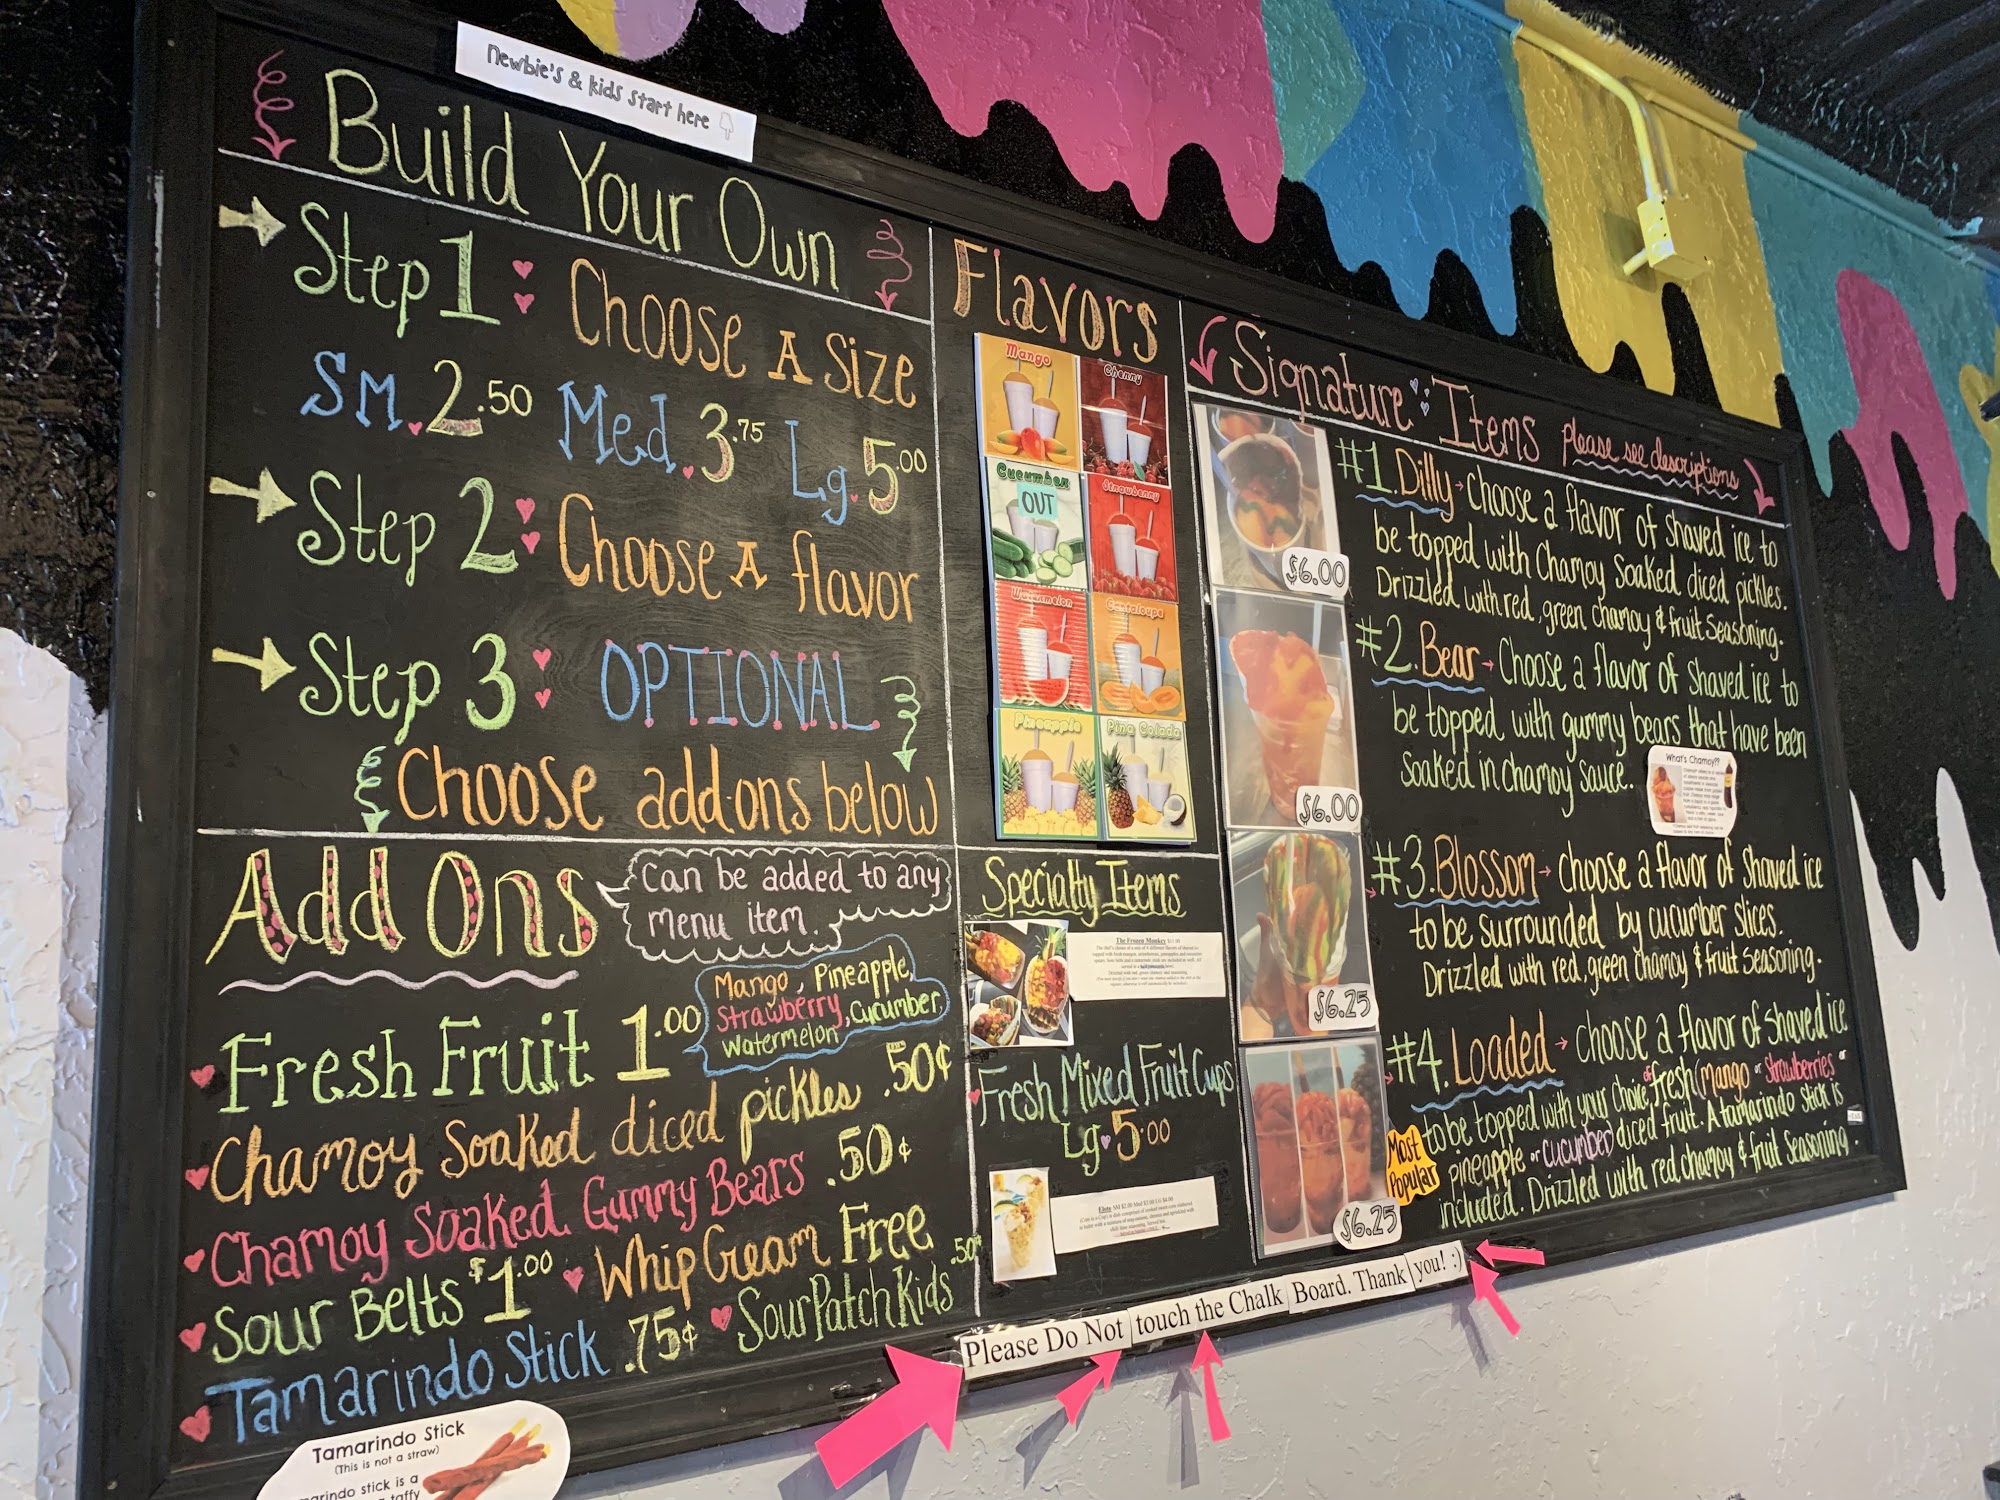 Newbie's & kids start here
Build Your Own
Step 1: Choose A Size
SM. 2.50 Med. 3.75 Lg. 5.00
Step 2: Choose A flavor
Step 3: OPTIONAL
Choose add-ons below
Add Ons
Can be added to any
menu item.
Fresh Fruit 1.00
Mango, Pineapple,
Strawberry, Cucumber,
Watermelon
Chamoy Soaked diced pickles .50¢
Chamoy Soaked Gummy Bears .50¢
Sour Belts $1.00 Whip Cream Free
Tamarindo Stick .75¢ Sour Patch Kids .50¢
Tamarindo Stick
(This is not a straw)
stick is a
taffy
Flavors
Mango
Cherry
Cucumber
OUT
Strawberry
Watermelon
Cantaloupe
Pineapple
Pina Colada
Specialty Items
The Frozen Monkey
Fresh Mixed Fruit Cups
Lg. 5.00
Elote SM $2.00 Med $3.00 LG $4.00
Signature Items please see descriptions
#1. Dilly → Choose a flavor of Shaved ice to
be topped with Chamoy Soaked diced pickles.
Drizzled with red, green chamoy & fruit seasoning.
$6.00
#2. Bear → Choose a flavor of Shaved ice to
be topped with gummy bears that have been
Soaked in chamoy sauce.
$6.00
What's Chamoy??
#3. Blossom → Choose a flavor of Shaved ice
to be surrounded by cucumber slices.
Drizzled with red, green chamoy & fruit seasoning.
$6.25
#4. Loaded → Choose a flavor of Shaved ice
to be topped with your choice of fresh (mango or strawberries or
pineapple or cucumber) diced fruit. A tamarindo stick is
included. Drizzled with red chamoy & fruit seasoning.
Most
Popular
$6.25
Please Do Not touch the Chalk Board. Thank you! :)